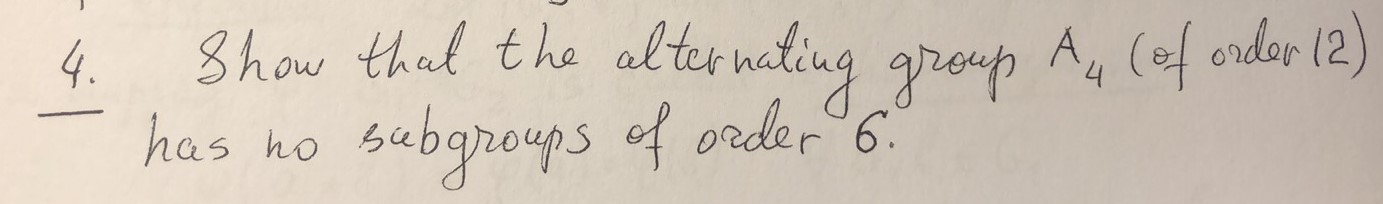 4. Show that the alternating group A₄ (of order 12)
has no subgroups of order 6.